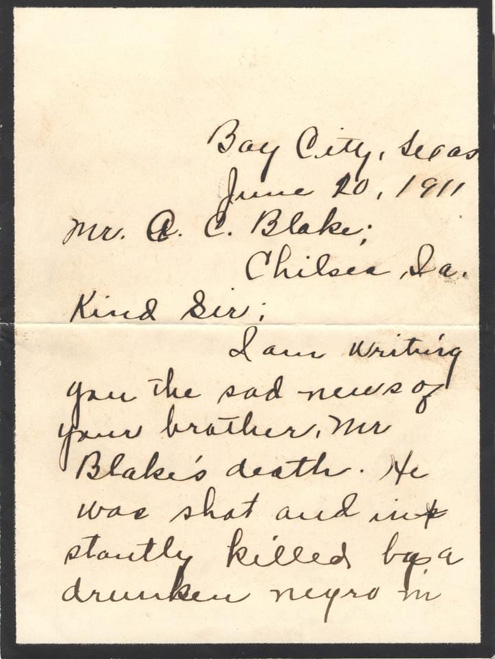 Bay City, Texas
June 20, 1911
Mr. A. C. Blake;
Chilsea, Ia.
Kind Sir;
I am writing
you the sad news of
your brother, Mr
Blake's death. He
was shot and in
stantly killed by a
drunken negro in